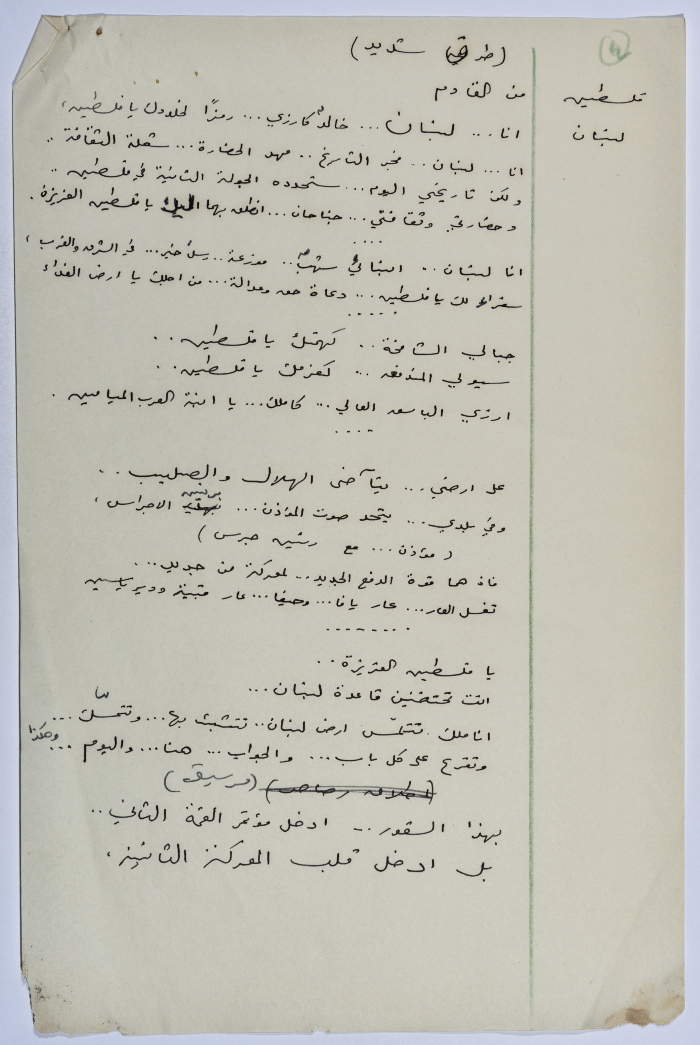 ٤
(طرق شديد)
فلسطين
من القادم
لبنان
انا ... لبنان ... خالدٌ كأرزي ... رمزًا لخلودك يا فلسطين،
انا ... لبنان .. فجر التاريخ .. مهد الحضارة ... شعلة الثقافة ..
ولكن تاريخي اليوم ... ستحدده الجولة الثانية في فلسطين ..
وحضارتي وثقافتي ... جناحان ... انطلق بهما اليك يا فلسطين العزيزة.
....
انا لبنان .. ابنائي شهبٌ .. موزعة .. رسل خير ... في الشرق والغرب،
سفراء لك يا فلسطين ... دعاة حق وعدالة ... من اجلك يا ارض الفداء
.....
جبالي الشامخة .. كهمتك يا فلسطين ..
سيولي المندفعه ... كعزمك يا فلسطين ..
ارزي الباسق العالي ... كأملك ... يا ابنة العرب الميامين.
....
على ارضي ... يتآخى الهلال والصليب ..
وفي بلدي ... يتحد صوت المؤذن ... برنين الاجراس،
(مؤذن ... مع رنين جرس)
فاذ هما قوة الدفع الجديد ... لمعركة من جديد ...
تغسل العار ... عار يافا ... وحيفا ... عار قبية ودير ياسين
........
يا فلسطين العزيزة ..
انت تحتضنين قاعدة لبنان ...
اناملك تتلمّس ارض لبنان .. تتشبث بها ... وتتمسك بها ...
وتقرع على كل باب ... والجواب ... هنا ... واليوم ... وهكذا
(اطلاق رصاص) (موسيقى)
بهذا الشعور .. ادخل مؤتمر القمة الثاني ..
بل ادخل قلب المعركة الثانية،